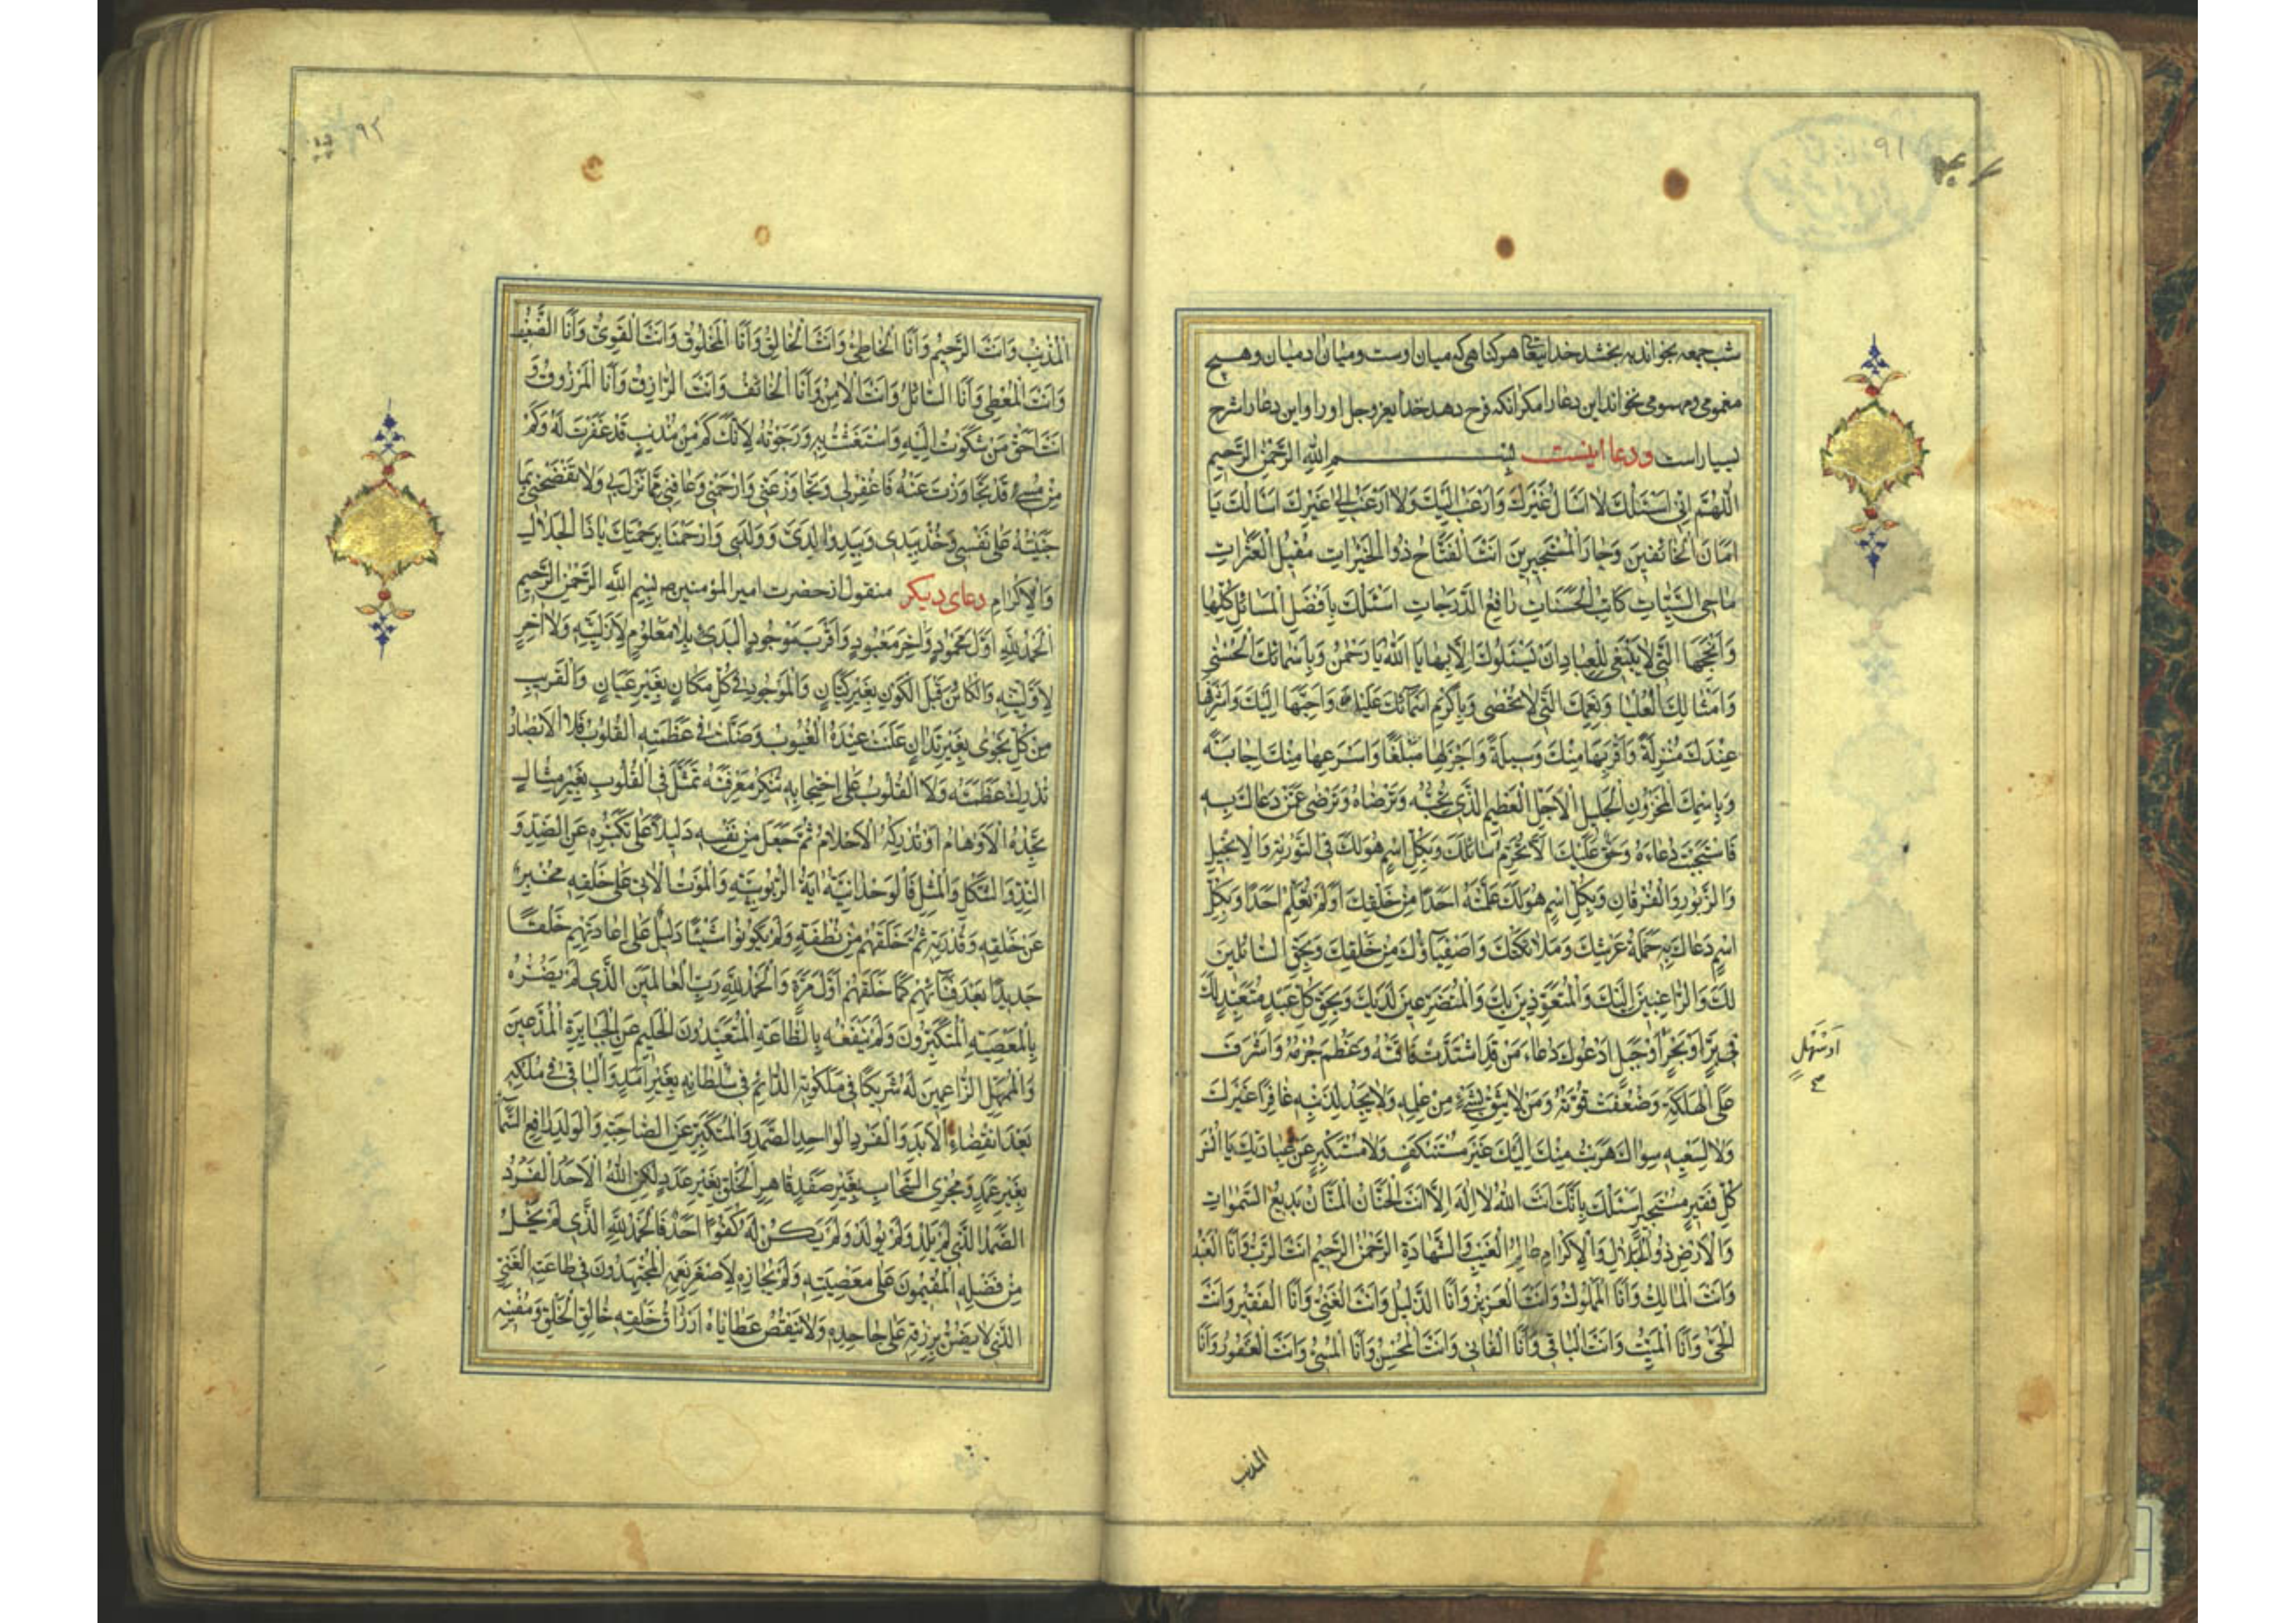 ۹۱
شب جمعه بخواند بخشد خدایتعالی هر کناهی که میان اوست و میان ادمیان و هیچ
مغمومی و مهمومی نخواند این دعا را مکر انکه فرح دهد خدا یعز وجل او را و این دعا را شرح
بسیار است و دعا اینست بِسْمِ اللهِ الرَّحْمٰنِ الرَّحِيمِ
اَللّٰهُمَّ اِنّي اَسْئَلُكَ وَلا اَسْاَلُ غَيْرَكَ وَاَرْغَبُ اِلَيْكَ وَلا اَرْغَبُ اِلىٰ غَيْرِكَ اَسْاَلُكَ يَا
اَمَانَ الْخَائِفينَ وَجَارَ الْمُسْتَجيرينَ اَنْتَ الْفَتَّاحُ ذُو الْخَيْرَاتِ مُقيلُ الْعَثَرَاتِ
مَاحِي السَّيِّئَاتِ كَاتِبُ الْحَسَنَاتِ رَافِعُ الدَّرَجَاتِ اَسْئَلُكَ بِاَفْضَلِ الْمَسَائِلِ كُلِّهَا
وَاَنْجَحِهَا الَّتي لا يَنْبَغي لِلْعِبَادِ اَنْ يَسْئَلُوكَ اِلّا بِهَا يَا اَللهُ يَا رَحْمٰنُ وَبِاَسْمَائِكَ الْحُسْنىٰ
وَاَمْثَالِكَ الْعُلْيَا وَنِعَمِكَ الَّتي لا تُحْصىٰ وَبِاَكْرَمِ اَسْمَائِكَ عَلَيْكَ وَاَحَبِّهَا اِلَيْكَ وَاَشْرَفِهَا
عِنْدَكَ مَنْزِلَةً وَاَقْرَبِهَا مِنْكَ وَسيلَةً وَاَجْزَلِهَا مَبْلَغًا وَاَسْرَعِهَا مِنْكَ اِجَابَةً
وَبِاسْمِكَ الْمَخْزُونِ الْجَليلِ الْاَجَلِّ الْعَظيمِ الَّذي تُحِبُّهُ وَتَرْضَاهُ وَتَرْضىٰ عَمَّنْ دَعَاكَ بِهِ
فَاسْتَجَبْتَ دُعَاءَهُ وَحَقٌّ عَلَيْكَ اَلّا تَحْرِمَ سَائِلَكَ وَبِكُلِّ اسْمٍ هُوَ لَكَ فِي التَّوْرٰيةِ وَالْاِنْجيلِ
وَالزَّبُورِ وَالْفُرْقَانِ وَبِكُلِّ اسْمٍ هُوَ لَكَ عَلَّمْتَهُ اَحَدًا مِنْ خَلْقِكَ اَوْ لَمْ تُعَلِّمْهُ اَحَدًا وَبِكُلِّ
اسْمٍ دَعَاكَ بِهِ حَمَلَةُ عَرْشِكَ وَمَلائِكَتُكَ وَاَصْفِيَاؤُكَ مِنْ خَلْقِكَ وَبِحَقِّ السَّائِلينَ
لَكَ وَالرَّاغِبينَ اِلَيْكَ وَالْمُتَعَوِّذينَ بِكَ وَالْمُتَضَرِّعينَ لَدَيْكَ وَبِحَقِّ كُلِّ عَبْدٍ مُتَعَبِّدٍ لَكَ
في بَرٍّ اَوْ بَحْرٍ اَوْ جَبَلٍ اَدْعُوكَ دُعَاءَ مَنْ قَدِ اشْتَدَّتْ فَاقَتُهُ وَعَظُمَ جُرْمُهُ وَاَشْرَفَ
اَوْ سَهْلٍ
عَلَى الْهَلَكَةِ وَضَعُفَتْ قُوَّتُهُ وَمَنْ لا يَثِقُ بِشَيْءٍ مِنْ عَمَلِهِ وَلا يَجِدُ لِذَنْبِهِ غَافِرًا غَيْرَكَ
وَلا لِسَعْيِهِ سِوَاكَ هَرَبْتُ مِنْكَ اِلَيْكَ غَيْرَ مُسْتَنْكِفٍ وَلا مُسْتَكْبِرٍ عَنْ عِبَادَتِكَ يَا اُنْسَ
كُلِّ فَقيرٍ مُسْتَجيرٍ اَسْئَلُكَ بِاَنَّكَ اَنْتَ اللهُ لا اِلٰهَ اِلّا اَنْتَ الْحَنَّانُ الْمَنَّانُ بَديعُ السَّمٰوَاتِ
وَالْاَرْضِ ذُو الْجَلالِ وَالْاِكْرَامِ عَالِمُ الْغَيْبِ وَالشَّهَادَةِ الرَّحْمٰنُ الرَّحيمُ اَنْتَ الرَّبُّ وَاَنَا الْعَبْدُ
وَاَنْتَ الْمَالِكُ وَاَنَا الْمَمْلُوكُ وَاَنْتَ الْعَزيزُ وَاَنَا الذَّليلُ وَاَنْتَ الْغَنِيُّ وَاَنَا الْفَقيرُ وَاَنْتَ
الْحَيُّ وَاَنَا الْمَيِّتُ وَاَنْتَ الْبَاقي وَاَنَا الْفَاني وَاَنْتَ الْمُحْسِنُ وَاَنَا الْمُسيءُ وَاَنْتَ الْغَفُورُ وَاَنَا
المذنب
۹۲
الْمُذْنِبُ وَاَنْتَ الرَّحيمُ وَاَنَا الْخَاطِئُ وَاَنْتَ الْخَالِقُ وَاَنَا الْمَخْلُوقُ وَاَنْتَ الْقَوِيُّ وَاَنَا الضَّعيفُ
وَاَنْتَ الْمُعْطي وَاَنَا السَّائِلُ وَاَنْتَ الْاَمِنُ وَاَنَا الْخَائِفُ وَاَنْتَ الرَّازِقُ وَاَنَا الْمَرْزُوقُ وَ
اَنْتَ اَحَقُّ مَنْ شَكَوْتُ اِلَيْهِ وَاسْتَغَثْتُ بِهِ وَرَجَوْتُهُ لِاَنَّكَ كَمْ مِنْ مُذْنِبٍ قَدْ غَفَرْتَ لَهُ وَكَمْ
مِنْ مُسيءٍ قَدْ تَجَاوَزْتَ عَنْهُ فَاغْفِرْ لي وَتَجَاوَزْ عَنّي وَارْحَمْني وَعَافِني مِمَّا نَزَلَ بي وَلا تَفْضَحْني بِمَا
جَنَيْتُهُ عَلىٰ نَفْسي وَخُذْ بِيَدي وَبِيَدِ وَالِدَيَّ وَوَلَدي وَارْحَمْنَا بِرَحْمَتِكَ يَا ذَا الْجَلالِ
وَالْاِكْرَامِ دعای دیکر منقول از حضرت امیر المؤمنین بِسْمِ اللهِ الرَّحْمٰنِ الرَّحيمِ
اَلْحَمْدُ لِلّٰهِ اَوَّلِ مَحْمُودٍ وَاٰخِرِ مَعْبُودٍ وَاَقْرَبِ مَوْجُودٍ الْبَدِئِ بِلا مَعْلُومٍ لِاَزَلِيَّتِهِ وَلا اٰخِرٍ
لِاَوَّلِيَّتِهِ وَالْكَائِنِ قَبْلَ الْكَوْنِ بِغَيْرِ كِيَانٍ وَالْمَوْجُودِ في كُلِّ مَكَانٍ بِغَيْرِ عَيَانٍ وَالْقَريبِ
مِنْ كُلِّ نَجْوىٰ بِغَيْرِ تَدَانٍ عَلَنَتْ عِنْدَهُ الْغُيُوبُ وَضَلَّتْ في عَظَمَتِهِ الْقُلُوبُ فَلا الْاَبْصَارُ
تُدْرِكُ عَظَمَتَهُ وَلا الْقُلُوبُ عَلَى احْتِجَابِهِ تُنْكِرُ مَعْرِفَتَهُ تَمَثَّلَ فِي الْقُلُوبِ بِغَيْرِ مِثَالٍ
تَحُدُّهُ الْاَوْهَامُ اَوْ تُدْرِكُهُ الْاَحْلامُ ثُمَّ جَعَلَ مِنْ نَفْسِهِ دَليلًا عَلىٰ تَكَبُّرِهِ عَنِ الضِّدِّ وَ
النِّدِّ وَالشَّكْلِ وَالْمِثْلِ فَالْوَحْدَانِيَّةُ اٰيَةُ الرُّبُوبِيَّةِ وَالْمَوْتُ الْاٰتي عَلىٰ خَلْقِهِ مُخْبِرٌ
عَنْ خَلْقِهِ وَقُدْرَتِهِ ثُمَّ خَلَقَهُمْ مِنْ نُطْفَةٍ وَلَمْ يَكُونُوا شَيْئًا دَليلٌ عَلىٰ اِعَادَتِهِمْ خَلْقًا
جَديدًا بَعْدَ فَنَائِهِمْ كَمَا خَلَقَهُمْ اَوَّلَ مَرَّةٍ وَالْحَمْدُ لِلّٰهِ رَبِّ الْعَالَمينَ الَّذي لَمْ يَضُرُّهُ
بِالْمَعْصِيَةِ الْمُتَكَبِّرُونَ وَلَمْ يَنْفَعْهُ بِالطَّاعَةِ الْمُتَعَبِّدُونَ الْحَليمِ عَنِ الْجَبَابِرَةِ الْمُدَّعينَ
وَالْمُمْهِلِ الزَّاعِمينَ لَهُ شَريكًا في مَلَكُوتِهِ الدَّائِمِ في سُلْطَانِهِ بِغَيْرِ اَمَدٍ وَالْبَاقي في مُلْكِهِ
بَعْدَ انْقِضَاءِ الْاَبَدِ وَالْفَرْدِ الْوَاحِدِ الصَّمَدِ وَالْمُتَكَبِّرِ عَنِ الصَّاحِبَةِ وَالْوَلَدِ رَافِعِ السَّمَاءِ
بِغَيْرِ عَمَدٍ وَمُجْرِي السَّحَابِ بِغَيْرِ صَفَدٍ قَاهِرِ الْخَلْقِ بِغَيْرِ عَدَدٍ لٰكِنِ اللهُ الْاَحَدُ الْفَرْدُ
الصَّمَدُ الَّذي لَمْ يَلِدْ وَلَمْ يُولَدْ وَلَمْ يَكُنْ لَهُ كُفُوًا اَحَدٌ فَالْحَمْدُ لِلّٰهِ الَّذي لَمْ يَبْخَلْ
مِنْ فَضْلِهِ الْمُقيمُونَ عَلىٰ مَعْصِيَتِهِ وَلَمْ يُجَازِهِ لِاَصْغَرِ نِعَمِهِ الْمُجْتَهِدُونَ في طَاعَتِهِ الْغَنِيِّ
الَّذي لا يَضِنُّ بِرِزْقِهِ عَلىٰ جَاحِدِهِ وَلا يَنْقُصُ عَطَايَاهُ اَرْزَاقُ خَلْقِهِ خَالِقِ الْخَلْقِ وَمُفْنيهِ